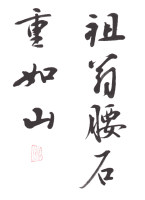 祖翁腰石
重如山